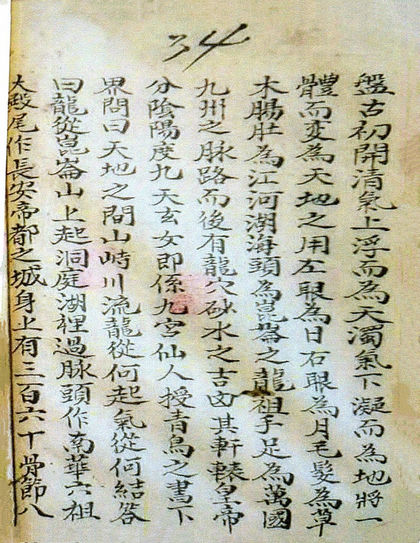 34
盤古初開清氣上浮而為天濁氣下凝而為地將一
體而変為天地之用左眼為日右眼為月毛髮為草
木腸肚為江河湖海頭為崑崙之龍祖手足為萬國
九州之脉路而後有龍穴砂水之吉凶其軒轅皇帝
分陰陽度九天玄女即係九宮仙人授青鳥之書下
界問曰天地之間山峙川流龍從何起氣從何結答
曰龍從崑崙山上起洞庭湖裡過脉頭作南華六祖
大殿尾作長安帝都之城身上有三百六十骨節八